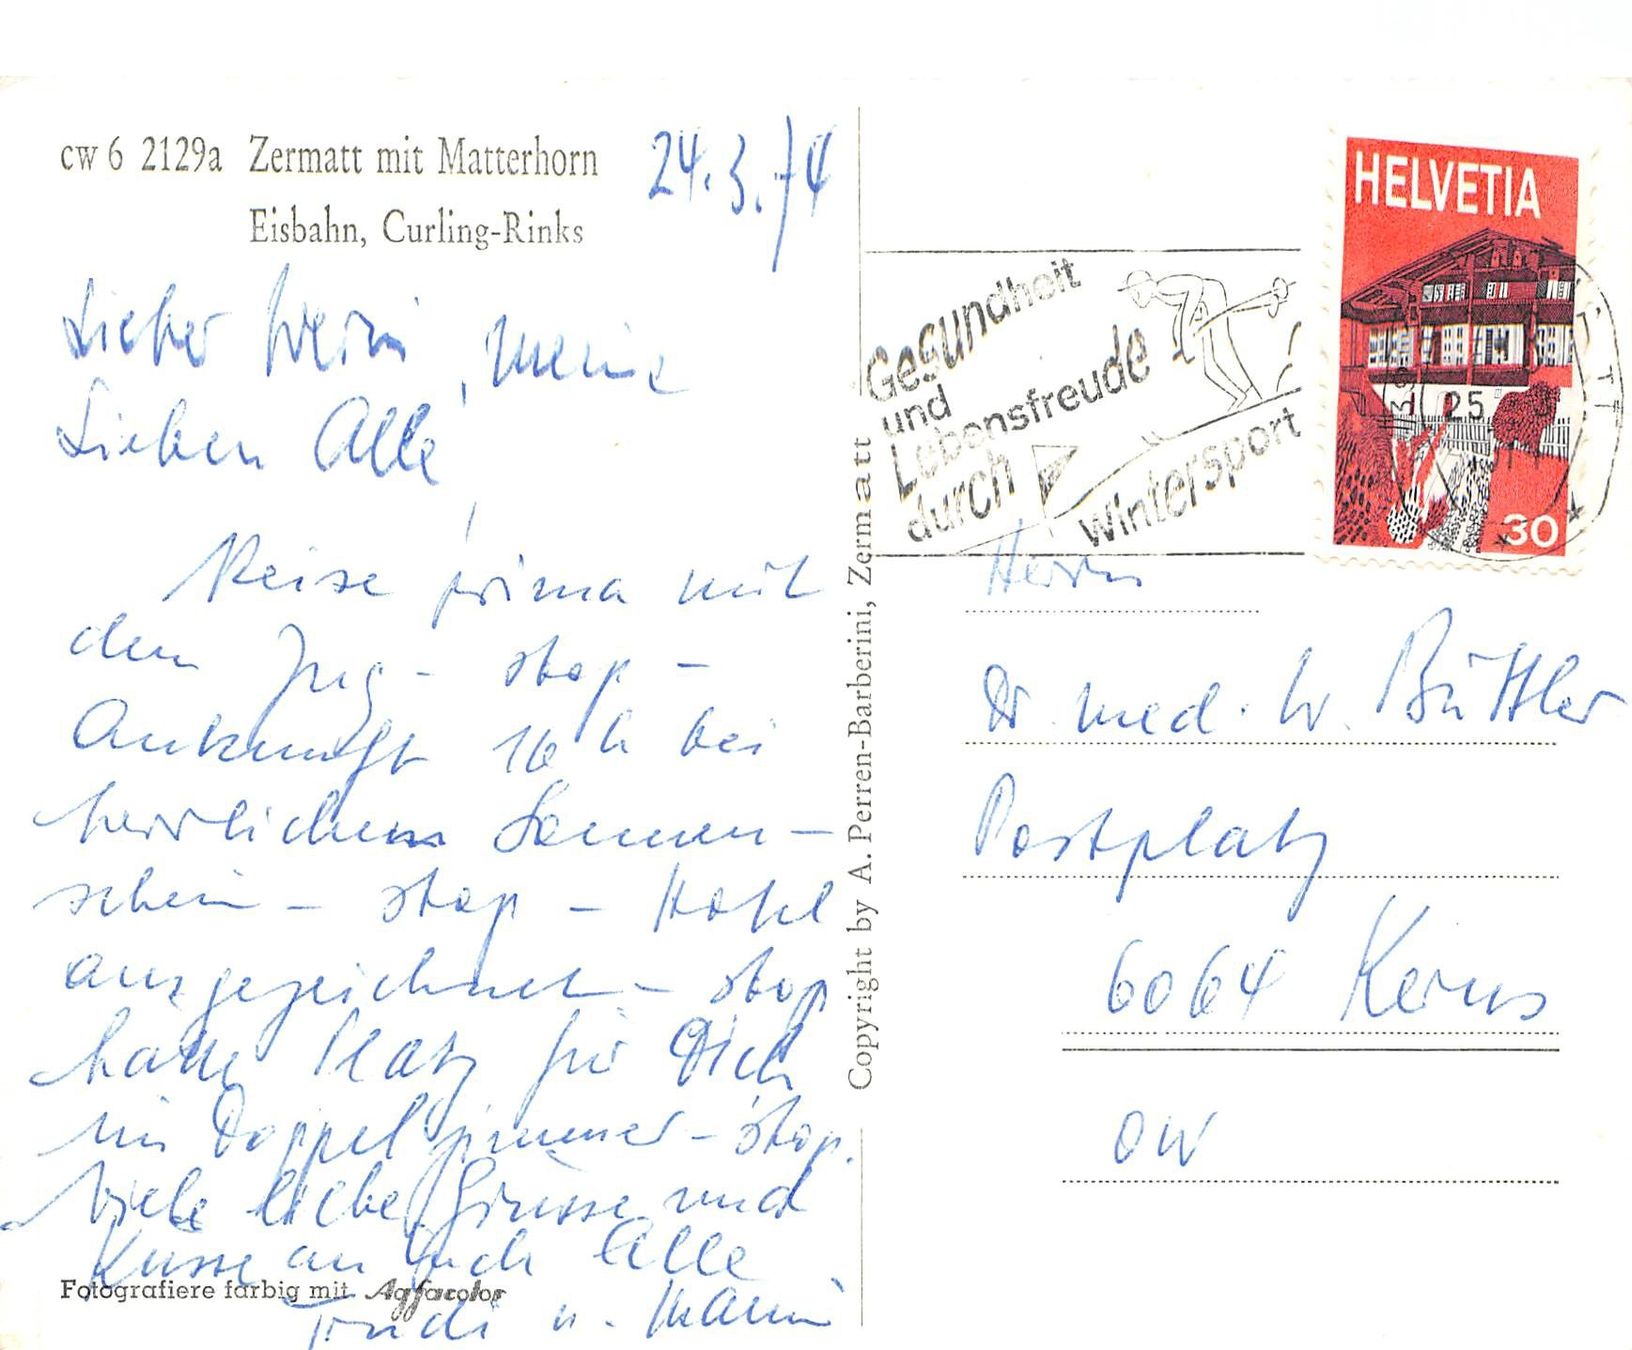 cw 6 2129a Zermatt mit Matterhorn
Eisbahn, Curling-Rinks
24.3.74
Lieber Werni, meine
Lieben Alle,
Reise prima mit
dem Zug - stop -
Ankunft 16 h bei
herrlichem Sonnen-
schein - stop - Hotel
ausgezeichnet - stop
hätte Platz für Dich
im Doppelzimmer - stop.
Viele liebe Grüsse und
Küsse an Euch Alle
Trudi u. Mami
Fotografiere farbig mit Agfacolor
Copyright by A. Perren-Barberini, Zermatt
Gesundheit
und
Lebensfreude
durch
Wintersport
HELVETIA
25
30
Herrn
Dr. med. W. Büttler
Postplatz
6064 Kerns
OW